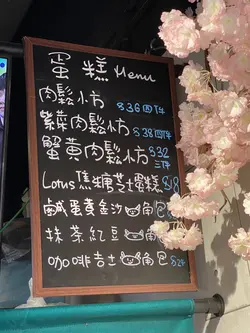 蛋糕 Menu
肉鬆小方 $36四件
紫菜肉鬆小方 $38四件
蟹黃肉鬆小方 $32三件
Lotus焦糖芝士蛋糕 $18
鹹蛋黃金沙角包
抹茶紅豆角包
咖啡吉士角包 $24